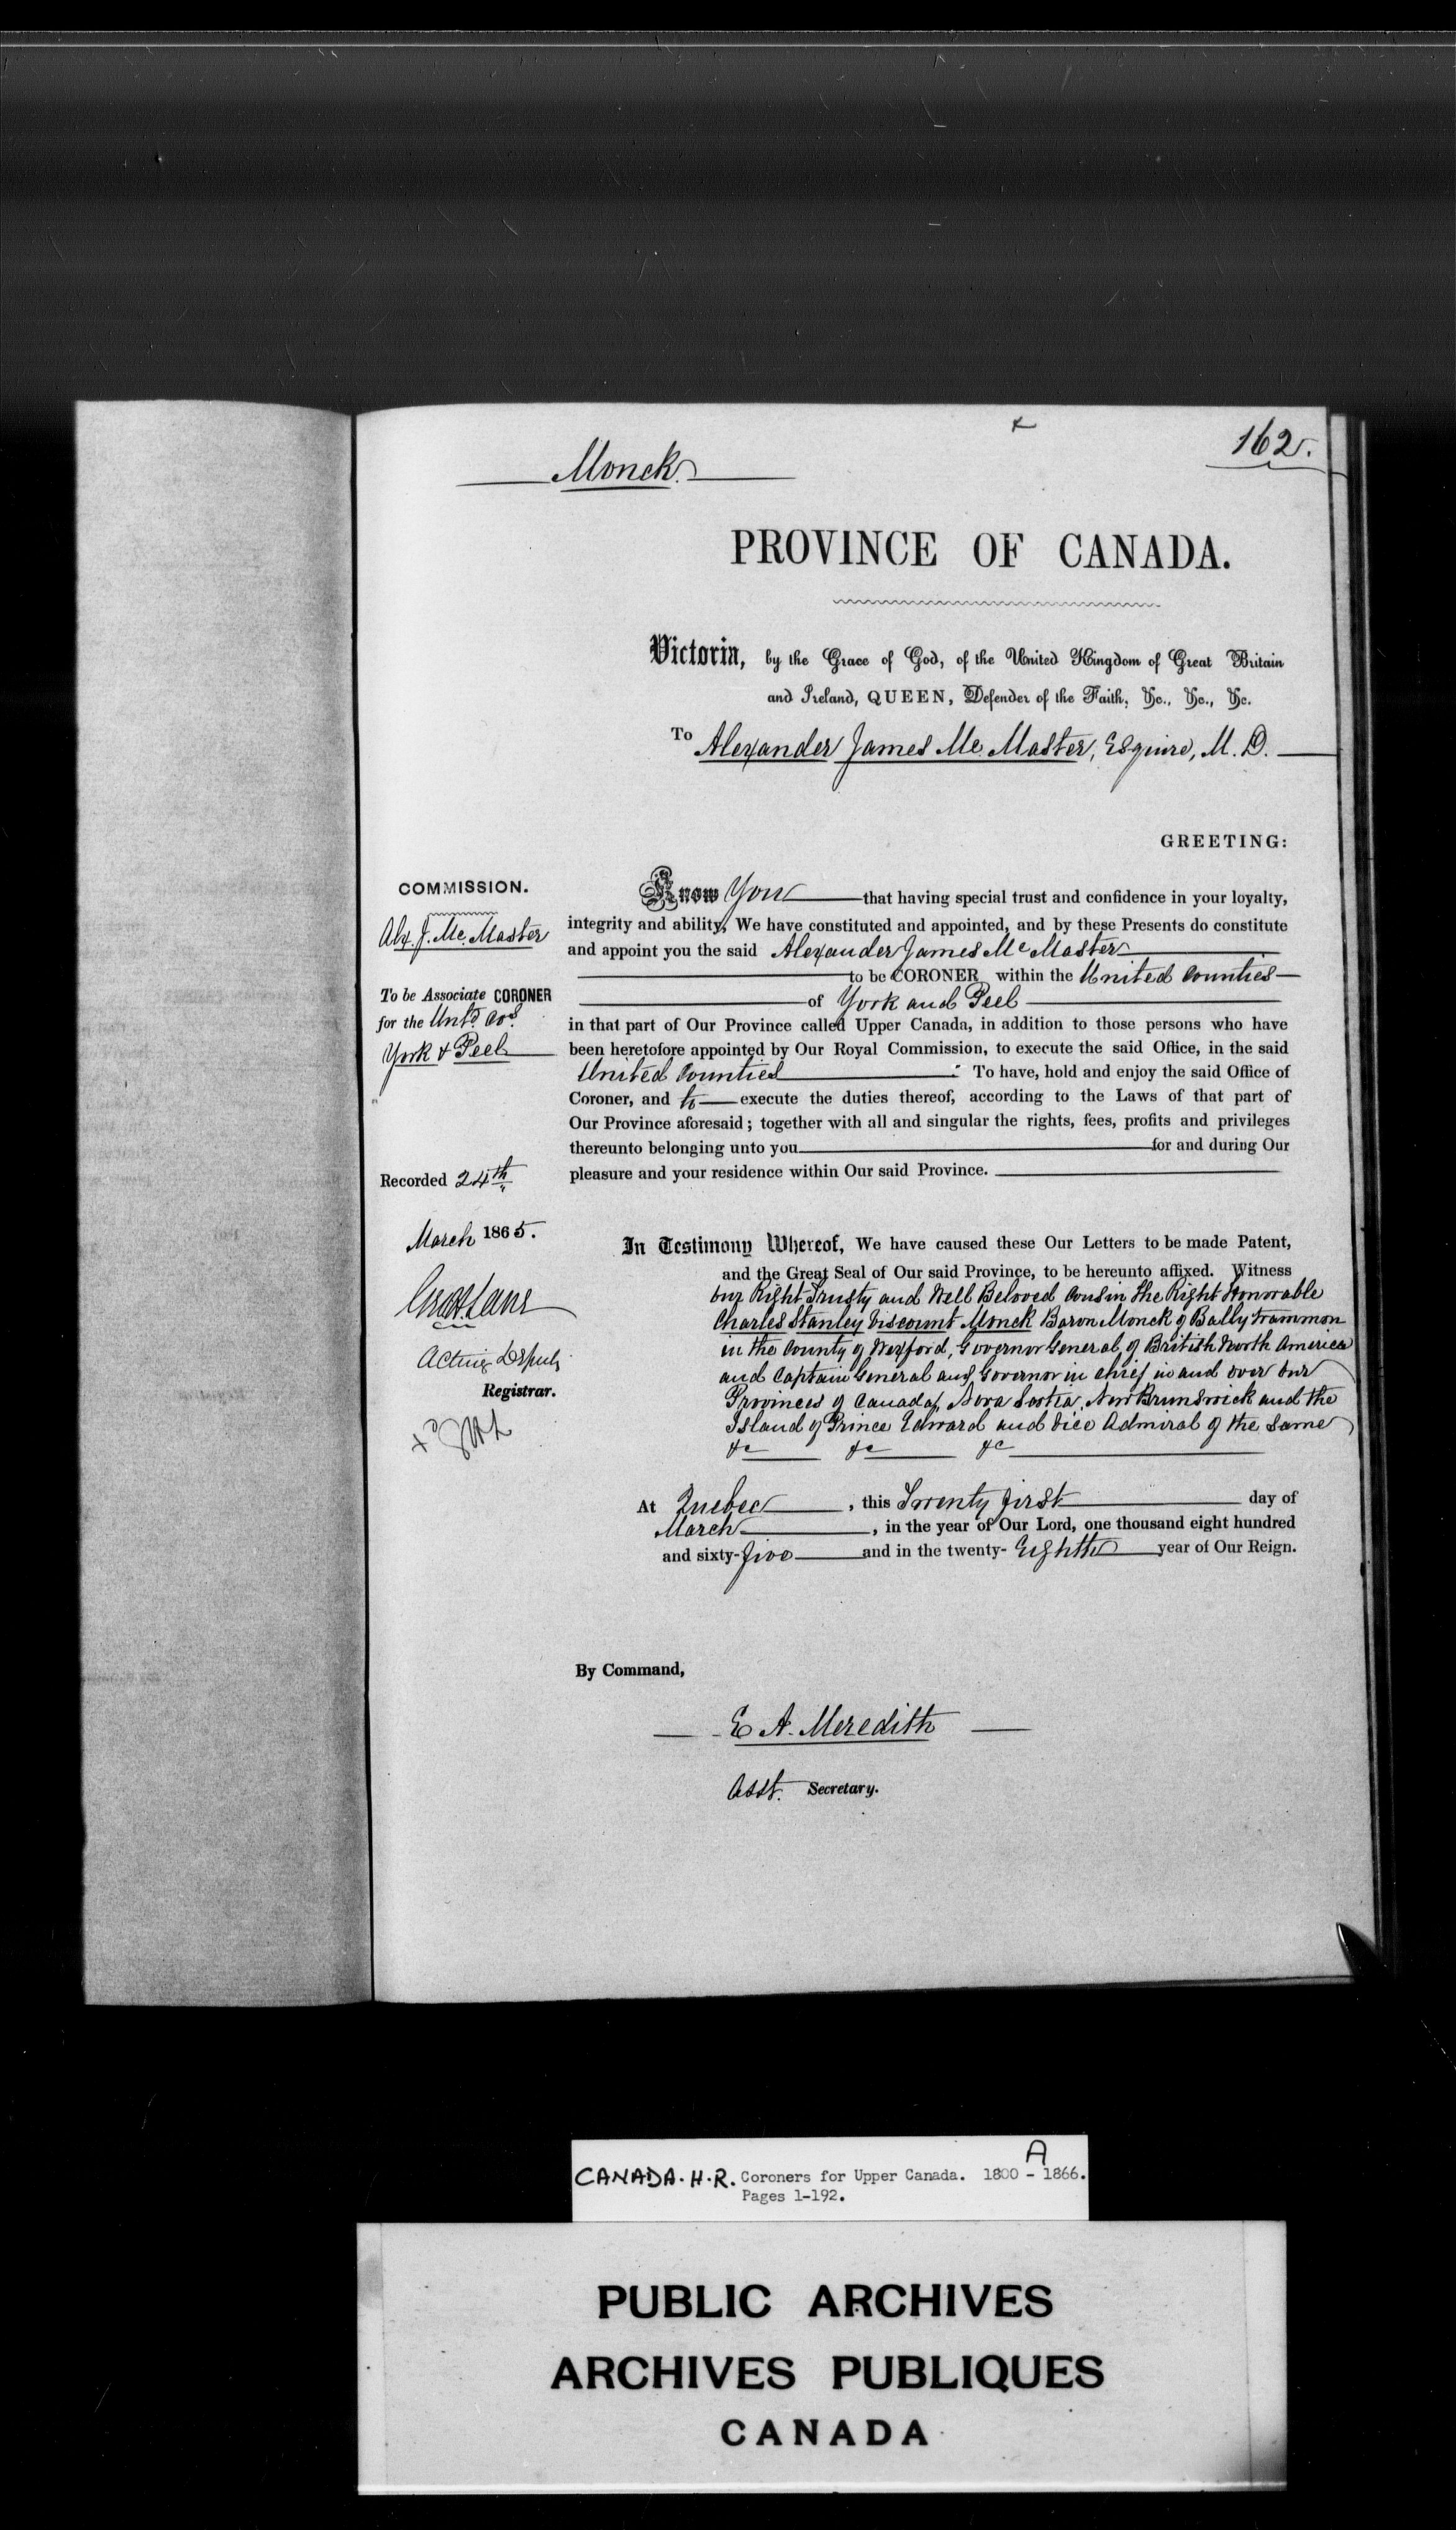 162.
Monck.
PROVINCE OF CANADA.
Victoria, by the Grace of God, of the United Kingdom of Great Britain
and Ireland, QUEEN, Defender of the Faith, &c., &c., &c.
To Alexander James Mc Master, Esquire, M. D.
GREETING:
COMMISSION.
Alx. J. Mc. Master
To be Associate CORONER
for the Untd Cos.
York & Peel
Recorded 24th
March 1865.
Lane
Acting Deputy
Registrar.
Know You that having special trust and confidence in your loyalty,
integrity and ability, We have constituted and appointed, and by these Presents do constitute
and appoint you the said Alexander James Mc Master
to be CORONER within the United Counties
of York and Peel
in that part of Our Province called Upper Canada, in addition to those persons who have
been heretofore appointed by Our Royal Commission, to execute the said Office, in the said
United Counties : To have, hold and enjoy the said Office of
Coroner, and to execute the duties thereof, according to the Laws of that part of
Our Province aforesaid; together with all and singular the rights, fees, profits and privileges
thereunto belonging unto you for and during Our
pleasure and your residence within Our said Province.
In Testimony Whereof, We have caused these Our Letters to be made Patent,
and the Great Seal of Our said Province, to be hereunto affixed. Witness
Our Right Trusty and Well Beloved Cousin the Right Honorable
Charles Stanley Viscount Monck Baron Monck of Ballytrammon
in the County of Wexford, Governor General of British North America
and Captain General and Governor in chief in and over Our
Provinces of Canada, Nova Scotia, New Brunswick and the
Island of Prince Edward and Vice Admiral of the same
&c &c &c
At Quebec, this Twenty first day of
March, in the year of Our Lord, one thousand eight hundred
and sixty-five and in the twenty-Eighth year of Our Reign.
By Command,
E A. Meredith
Asst. Secretary.
A
CANADA. H.R. Coroners for Upper Canada. 1800 - 1866.
Pages 1-192.
PUBLIC ARCHIVES
ARCHIVES PUBLIQUES
CANADA